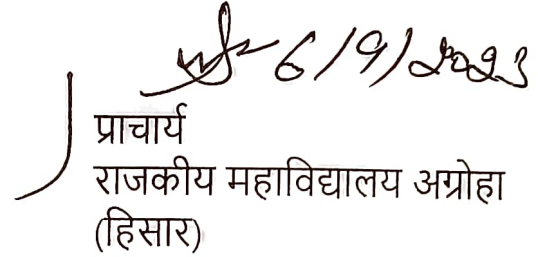 6/9/2023
प्राचार्य
राजकीय महाविद्यालय अग्रोहा
(हिसार)